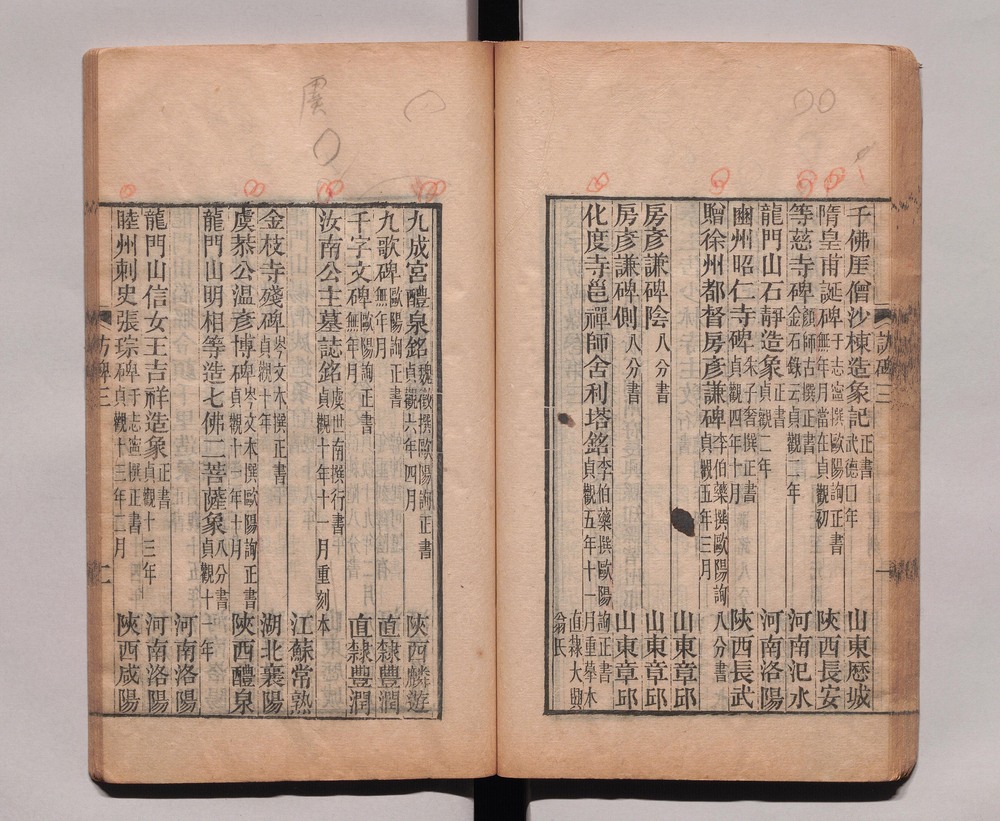 千佛厓僧沙棟造象記 正書 武德口年 山東歴城
隋皇甫誕碑 于志寧撰歐陽詢正書 無年月當在貞觀初 陝西長安
等慈寺碑 顏師古撰正書 金石錄云貞觀二年 河南汜水
龍門山石靜造象 正書 貞觀二年 河南洛陽
豳州昭仁寺碑 朱子奢撰正書 貞觀四年十月 陝西長武
贈徐州都督房彥謙碑 李伯藥撰歐陽詢八分書 貞觀五年三月 山東章邱
房彥謙碑陰 八分書 山東章邱
房彥謙碑側 八分書 山東章邱
化度寺邕禪師舍利塔銘 李伯藥撰歐陽詢正書 貞觀五年十一月重摹本 直隸大興翁氏
訪碑三 一
九成宮醴泉銘 魏徵撰歐陽詢正書 貞觀六年四月 陝西麟遊
九歌碑 歐陽詢正書 無年月 直隸豐潤
千字文碑 歐陽詢正書 無年月 直隸豐潤
汝南公主墓誌銘 虞世南撰行書 貞觀十年十一月重刻本 江蘇常熟
金枝寺殘碑 岑文本撰正書 貞觀十年 湖北襄陽
虞恭公温彥博碑 岑文本撰歐陽詢正書 貞觀十一年十月 陝西醴泉
龍門山明相等造七佛二菩薩象 八分書 貞觀十一年 河南洛陽
龍門山信女王吉祥造象 正書 貞觀十三年 河南洛陽
睦州刺史張琮碑 于志寧撰正書 貞觀十三年二月 陝西咸陽
訪碑三 二